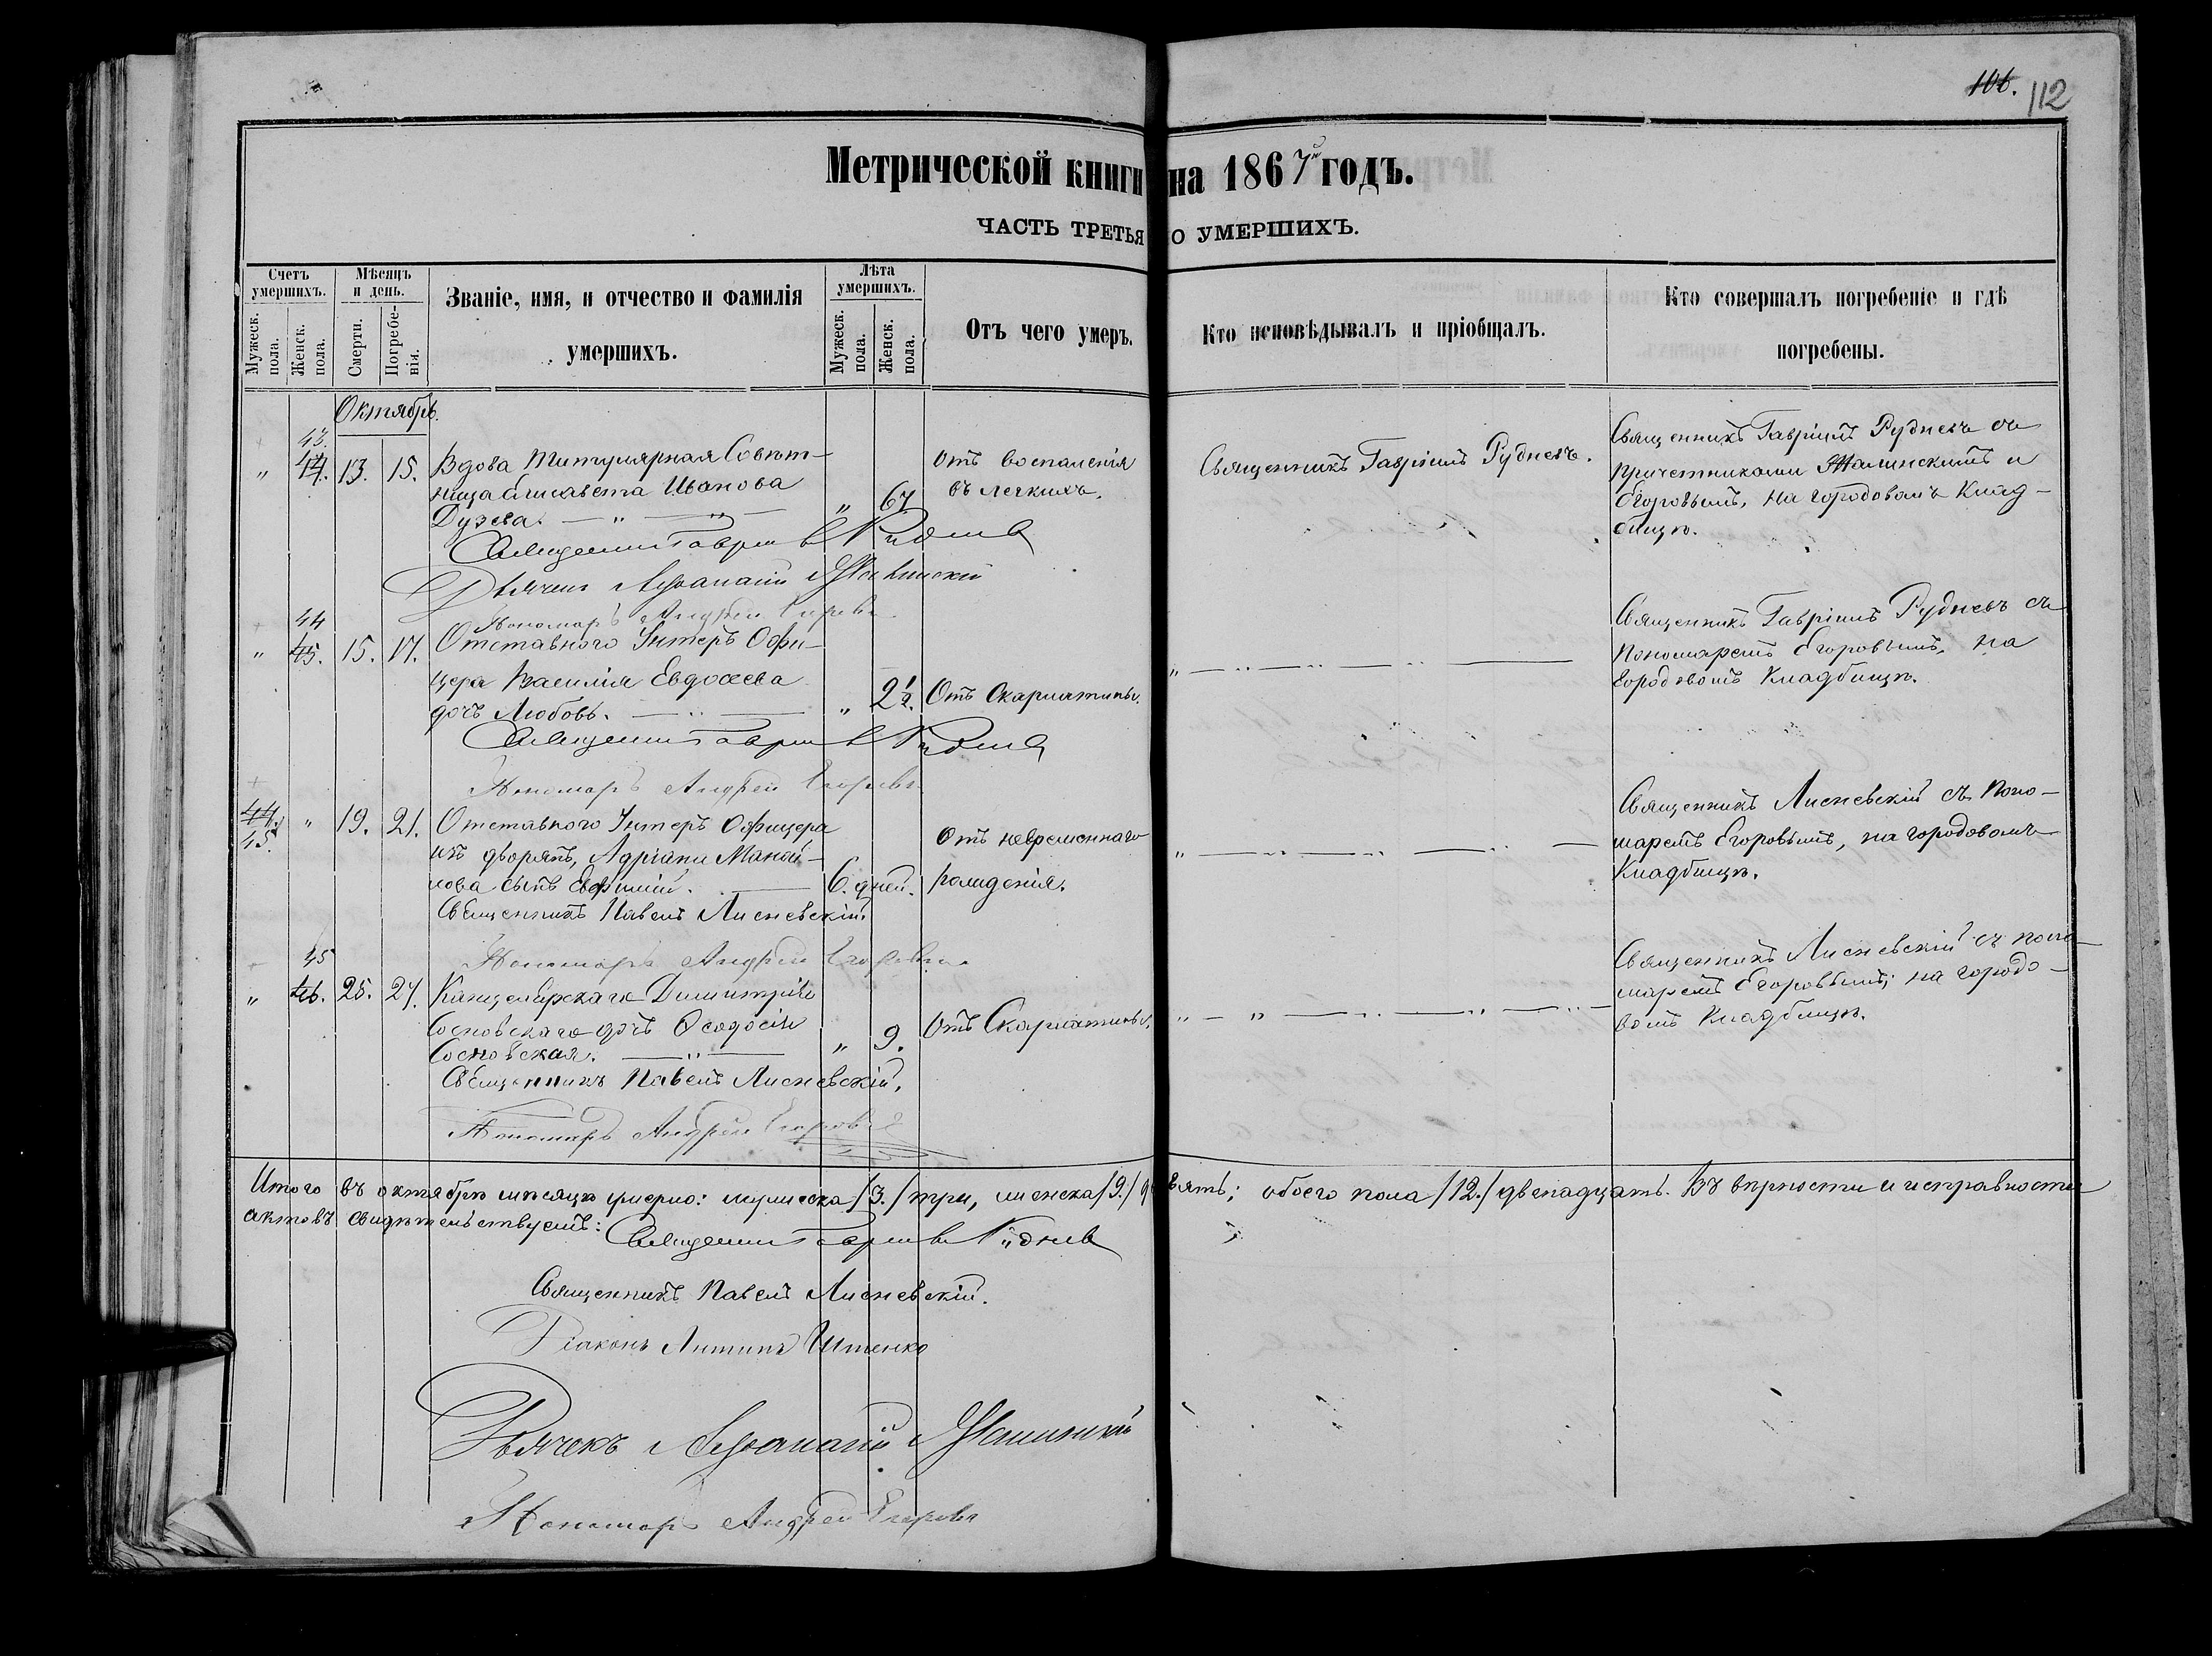 106. 112
Метрической книги на 1867й годъ.
ЧАСТЬ ТРЕТЬЯ О УМЕРШИХЪ.
Счетъ умершихъ.
Мужеск. пола.
Женск. пола.
Мѣсяцъ и день.
Смерти.
Погребенія.
Званіе, имя, и отчество и фамилія
умершихъ.
Лѣта умершихъ.
Мужеск. пола.
Женск. пола.
Отъ чего умеръ.
Кто исповѣдывалъ и пріобщалъ.
Кто совершалъ погребеніе и гдѣ
погребены.
Октябрь.
43.
" 44. 13. 15. Вдова Титулярная Совѣт-
ница Елисавета Иванова
Дузева. — " — " — " 67
Отъ воспаленія
въ легкихъ.
Священникъ Гавріилъ Рудневъ.
Священникъ Гавріилъ Рудневъ съ
причетниками и
Егоровымъ, на городовомъ Клад-
бищѣ.
Священникъ Гавріилъ Рудневъ
Дьячекъ Афанасій
Пономарь Андрей Егоровъ
44
" 45. 15. 17. Отставного Унтеръ Офи-
цера Василія Евдосеева
дочь Любовь. — " — " 2½. Отъ Скарлатины.
" — " — " — " —
Священникъ Гавріилъ Рудневъ съ
Пономаремъ Егоровымъ, на
городовомъ Кладбищѣ.
Священникъ Гавріилъ Рудневъ
Пономарь Андрей Егоровъ
44. " 19. 21. Отставного Унтеръ Офицера
15.
изъ дворянъ, Адріана Маной-
лова сынъ Евфимій. — 6. дней.
Отъ невременнаго
рожденія.
" — " — " — " —
Священникъ Лисневскій съ Поно-
маремъ Егоровымъ, на городовомъ
Кладбищѣ.
Священникъ Павелъ Лисневскій.
Пономарь Андрей Егоровъ
45
" 46. 25. 27. Канцелярскаго Димитрія
Сосновскаго дочь Ѳеодосія
Сосновская. — " — " 9. Отъ Скарлатины.
" — " — " — " —
Священникъ Лисневскій съ поно-
маремъ Егоровымъ; на городо-
вомъ Кладбищѣ.
Священникъ Павелъ Лисневскій.
Пономарь Андрей Егоровъ
Итого въ октябрѣ мѣсяцѣ умерло: мужеска /3./ три, женска /9./ девять; обоего пола /12./ двенадцать. Въ вѣрности и исправности
актовъ свидѣтельствуемъ:
Священникъ Гавріилъ Рудневъ
Священникъ Павелъ Лисневскій.
Діаконъ Антипъ
Дьячекъ Афанасій
Пономарь Андрей Егоровъ